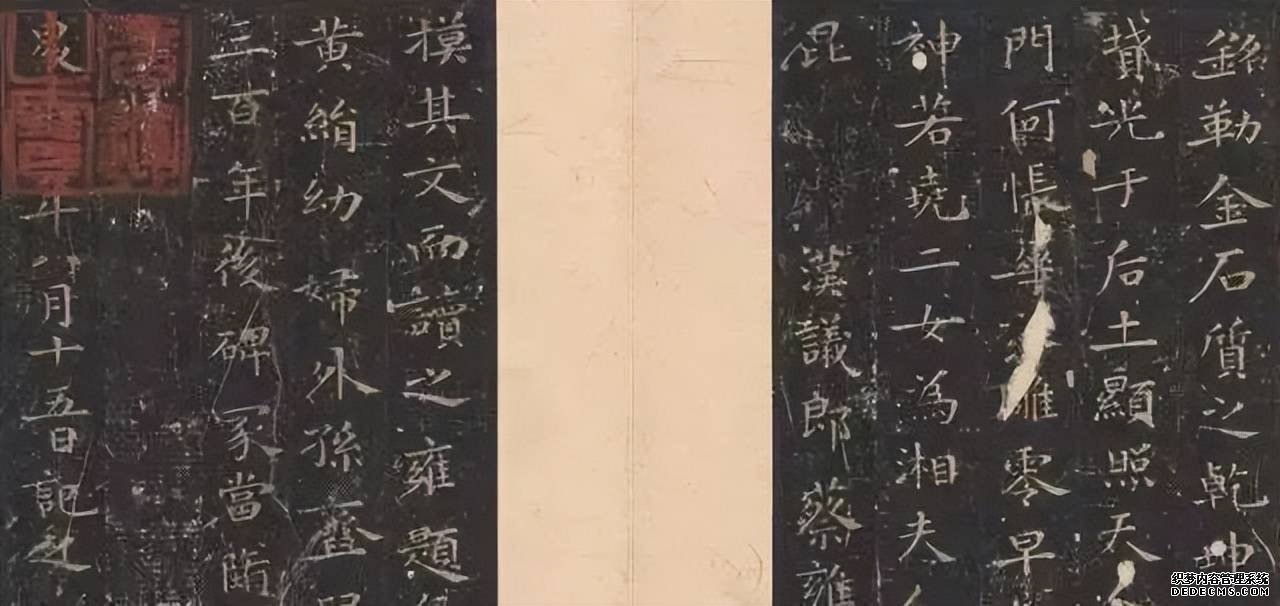 銘勒金石質之乾坤
墳光于后土顯照天人
門何悵華落雕零早
神若堯二女為湘夫人
昆 漢議郎蔡雍
摸其文而讀之雍題
黃絹幼婦外孫齏臼
三百年後碑冢當墮
年八月十五日記之
织梦内容管理系统
DEDECMS.COM